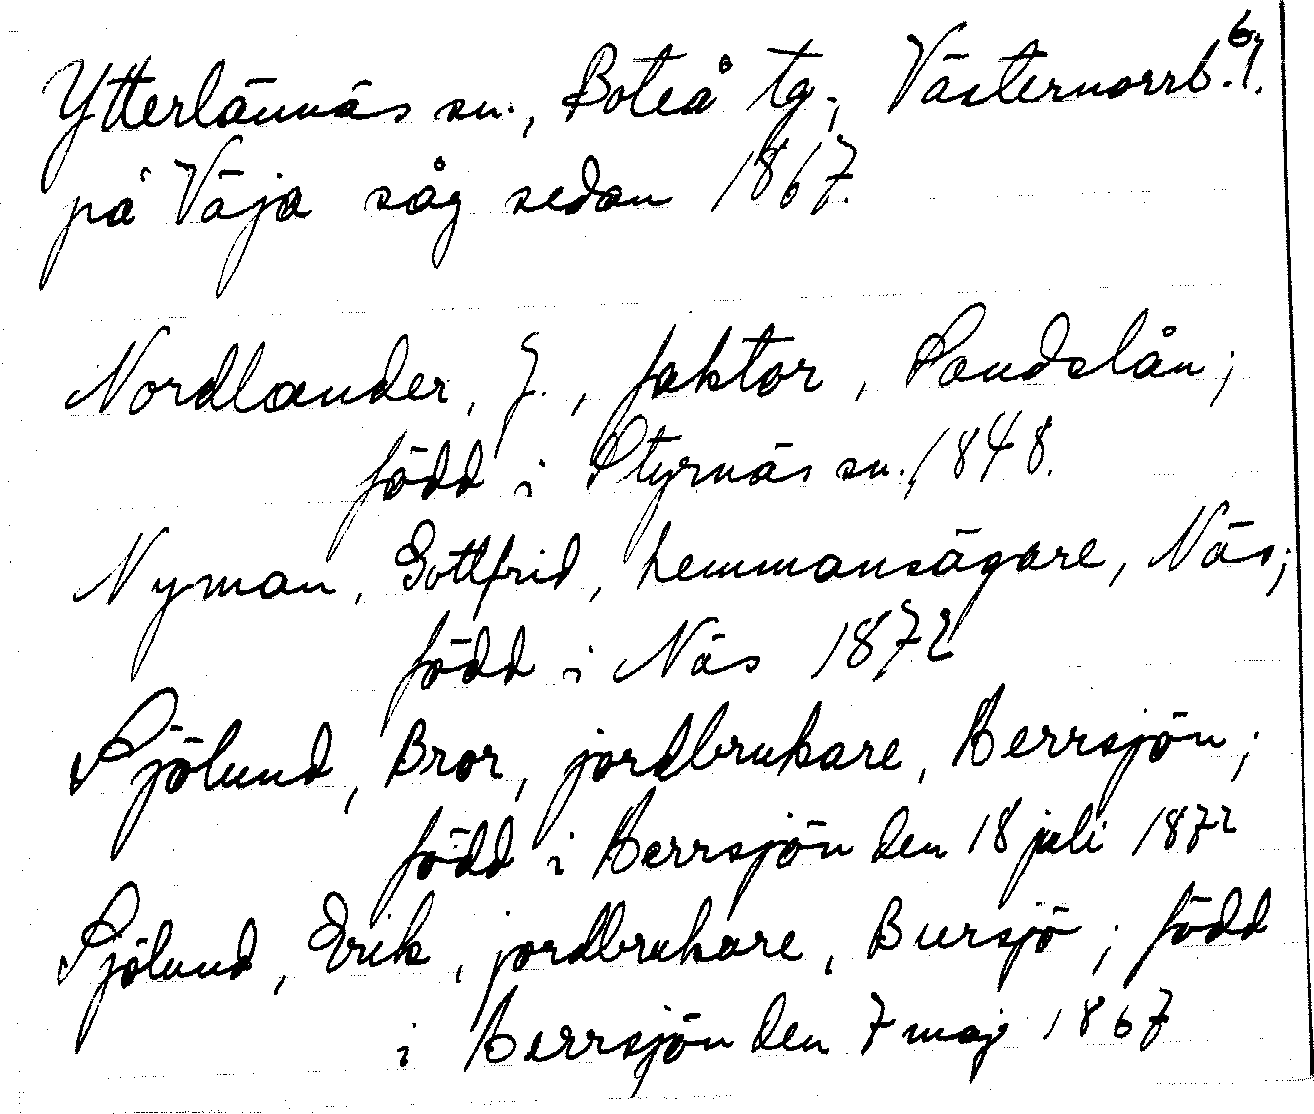 6
Ytterlännäs sn., Boteå tg.; Västernorrl. l.
på Väja såg sedan 1867.
Nordlander, J., faktor, Sandslån;
född i Styrnäs sn., 1848.
Nyman, Gottfrid, hemmansägare, Näs;
född i Näs 1872
Sjölund, Bror, jordbrukare, Herrsjön;
född i Herrsjön den 18 juli 1872
Sjölund, Erik, jordbrukare, Bursjö; född
i Herrsjön den 7 maj 1867